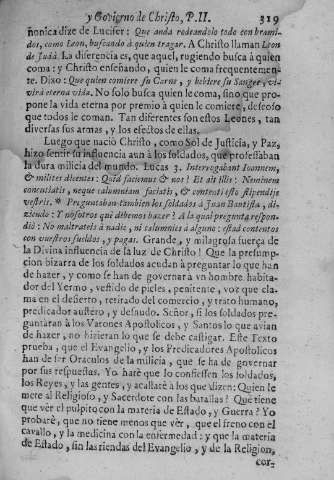 y Govierno de Christo, P. II. 319
nonica dize de Lucifer: Que anda rodeandolo todo con brami-
dos, como Leon, buscando à quien tragar. A Christo llaman Leon
de Judà. La diferencia es, que aquel, rugiendo busca à quien
coma: y Christo enseñando, quien le coma frequentemen-
te. Dixo: Que quien comiere su Carne, y bebiere su Sangre, vi-
virà eterna vida. No solo busca quien le coma, sino que pro-
pone la vida eterna por premio à quien le comiere, deseoso
que todos le coman. Tan diferentes son estos Leones, tan
diversas sus armas, y los efectos de ellas.
Luego que naciò Christo, como Sol de Justicia, y Paz,
hizo sentir su influencia aun à los soldados, que professaban
la dura milicia del mundo. Lucas 3. Interrogabant Ioannem,
& milites dicentes: Quid faciemus & nos? Et ait illis: Neminem
concutiatis, neque calumniam faciatis, & contenti esto stipendijs
vestris. * Preguntaban tambien los soldados à Juan Bautista, di-
ziendo: Y nosotros què debemos hazer? A la qual pregunta respon-
diò: No maltrateis à nadie, ni calumnieis à alguno: estad contentos
con vuestros sueldos, y pagas. Grande, y milagrosa fuerça de
la Divina influencia de la luz de Christo! Que la presump-
cion bizarra de los soldados acudan à preguntar lo que han
de hazer, y como se han de governar à vn hombre habita-
dor del Yermo, vestido de pieles, penitente, voz que cla-
ma en el desierto, retirado del comercio, y trato humano,
predicador austero, y desnudo. Señor, si los soldados pre-
guntaràn à los Varones Apostolicos, y Santos lo que avian
de hazer, no hizieran lo que se debe castigar. Este Texto
prueba, que el Evangelio, y los Predicadores Apostolicos
han de ser Oraculos de la milicia, que se ha de governar
por sus respuestas. Yo harè que lo confiessen los soldados,
los Reyes, y las gentes, y acallarè à los que dizen: Quien le
mete al Religioso, y Sacerdote con las batallas? Què tiene
que vèr el pulpito con la materia de Estado, y Guerra? Yo
probarè, que no tiene menos que vèr, que el freno con el
cavallo, y la medicina con la enfermedad: y que la materia
de Estado, sin las riendas del Evangelio, y de la Religion,
cor-